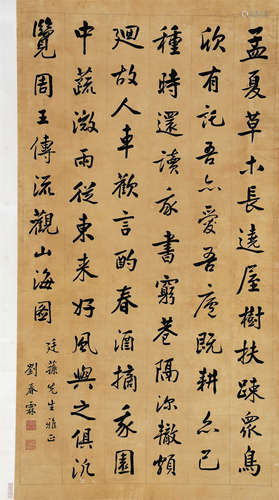 孟夏草木長遶屋樹扶踈眾鳥
欣有託吾亦愛吾廬既耕亦已
種時還讀我書窮巷隔深轍頗
迴故人車歡言酌春酒摘我園
中蔬微雨從東来好風與之俱汎
覽周王傳流觀山海圖
廷蓀先生雅正
劉春霖